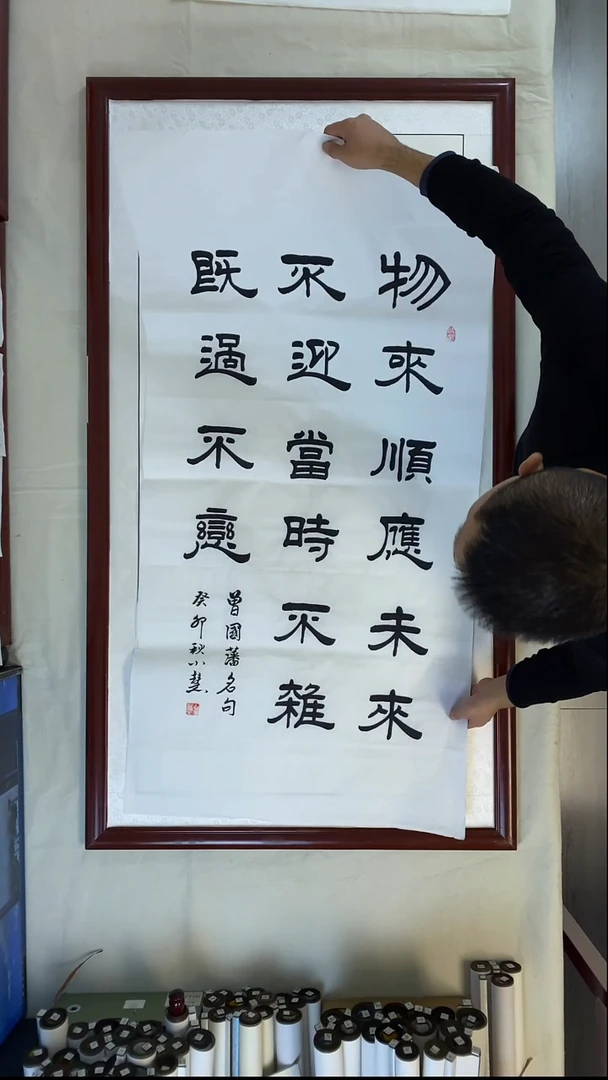 物來順應未來
不迎當時不雜
既過不戀
曾國藩名句
癸卯秋小慧